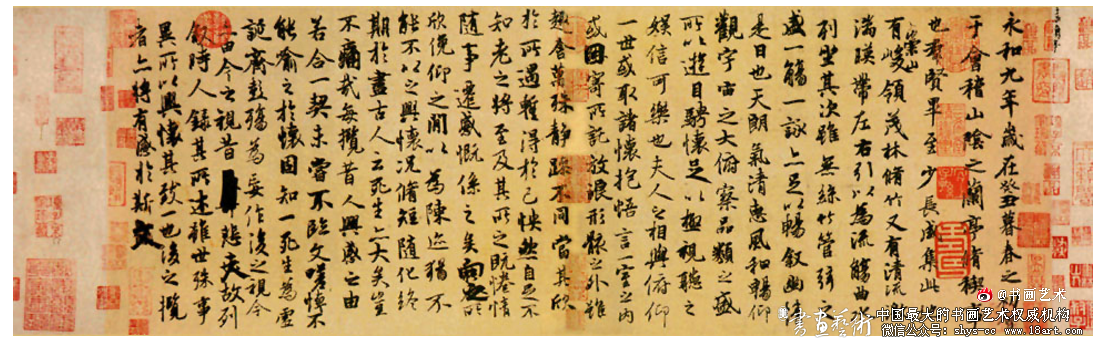 永和九年歲在癸丑暮春之初
于會稽山陰之蘭亭脩稧事
也羣賢畢至少長咸集此
有崇山峻領茂林脩竹又有清流激
湍暎帶左右引以為流觴曲水
列坐其次雖無絲竹管弦之
盛一觴一詠亦足以暢敘幽情
是日也天朗氣清惠風和暢仰
觀宇宙之大俯察品類之盛
所以遊目騁懷足以極視聽之
娛信可樂也夫人之相與俯仰
一世或取諸懷抱悟言一室之內
或因寄所託放浪形骸之外雖
趣舍萬殊靜躁不同當其欣
於所遇蹔得於己怏然自足不
知老之將至及其所之既惓情
隨事遷感慨係之矣向之所
欣俛仰之閒以為陳迹猶不
能不以之興懷況脩短隨化終
期於盡古人云死生亦大矣豈
不痛哉每攬昔人興感之由
若合一契未嘗不臨文嗟悼不
能喻之於懷固知一死生為虛
誕齊彭殤為妄作後之視今
亦由今之視昔悲夫故列
敘時人錄其所述雖世殊事
異所以興懷其致一也後之攬
者亦將有感於斯文
@书画艺术
書畫藝術
中国最大的书画艺术权威机构
微信公众号: shys-cc www.18art.com